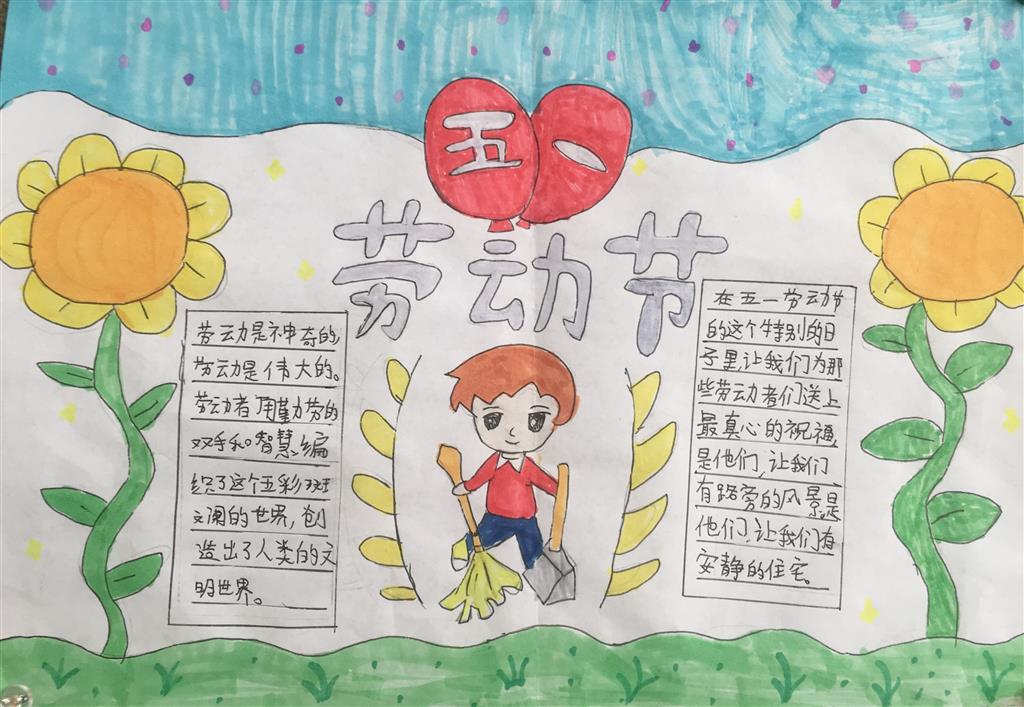 五一
劳动节
劳动力是神奇的
劳动是伟大的。
劳动者用勤劳的
双手和智慧,编
织了这个五彩斑
斓的世界,创
造出了人类的文
明世界。
在五一劳动节
的这个特别的日
子里,让我们为那
些劳动者们送上
最真心的祝福,
是他们,让我们
有路旁的风景,是
他们,让我们有
安静的住宅。